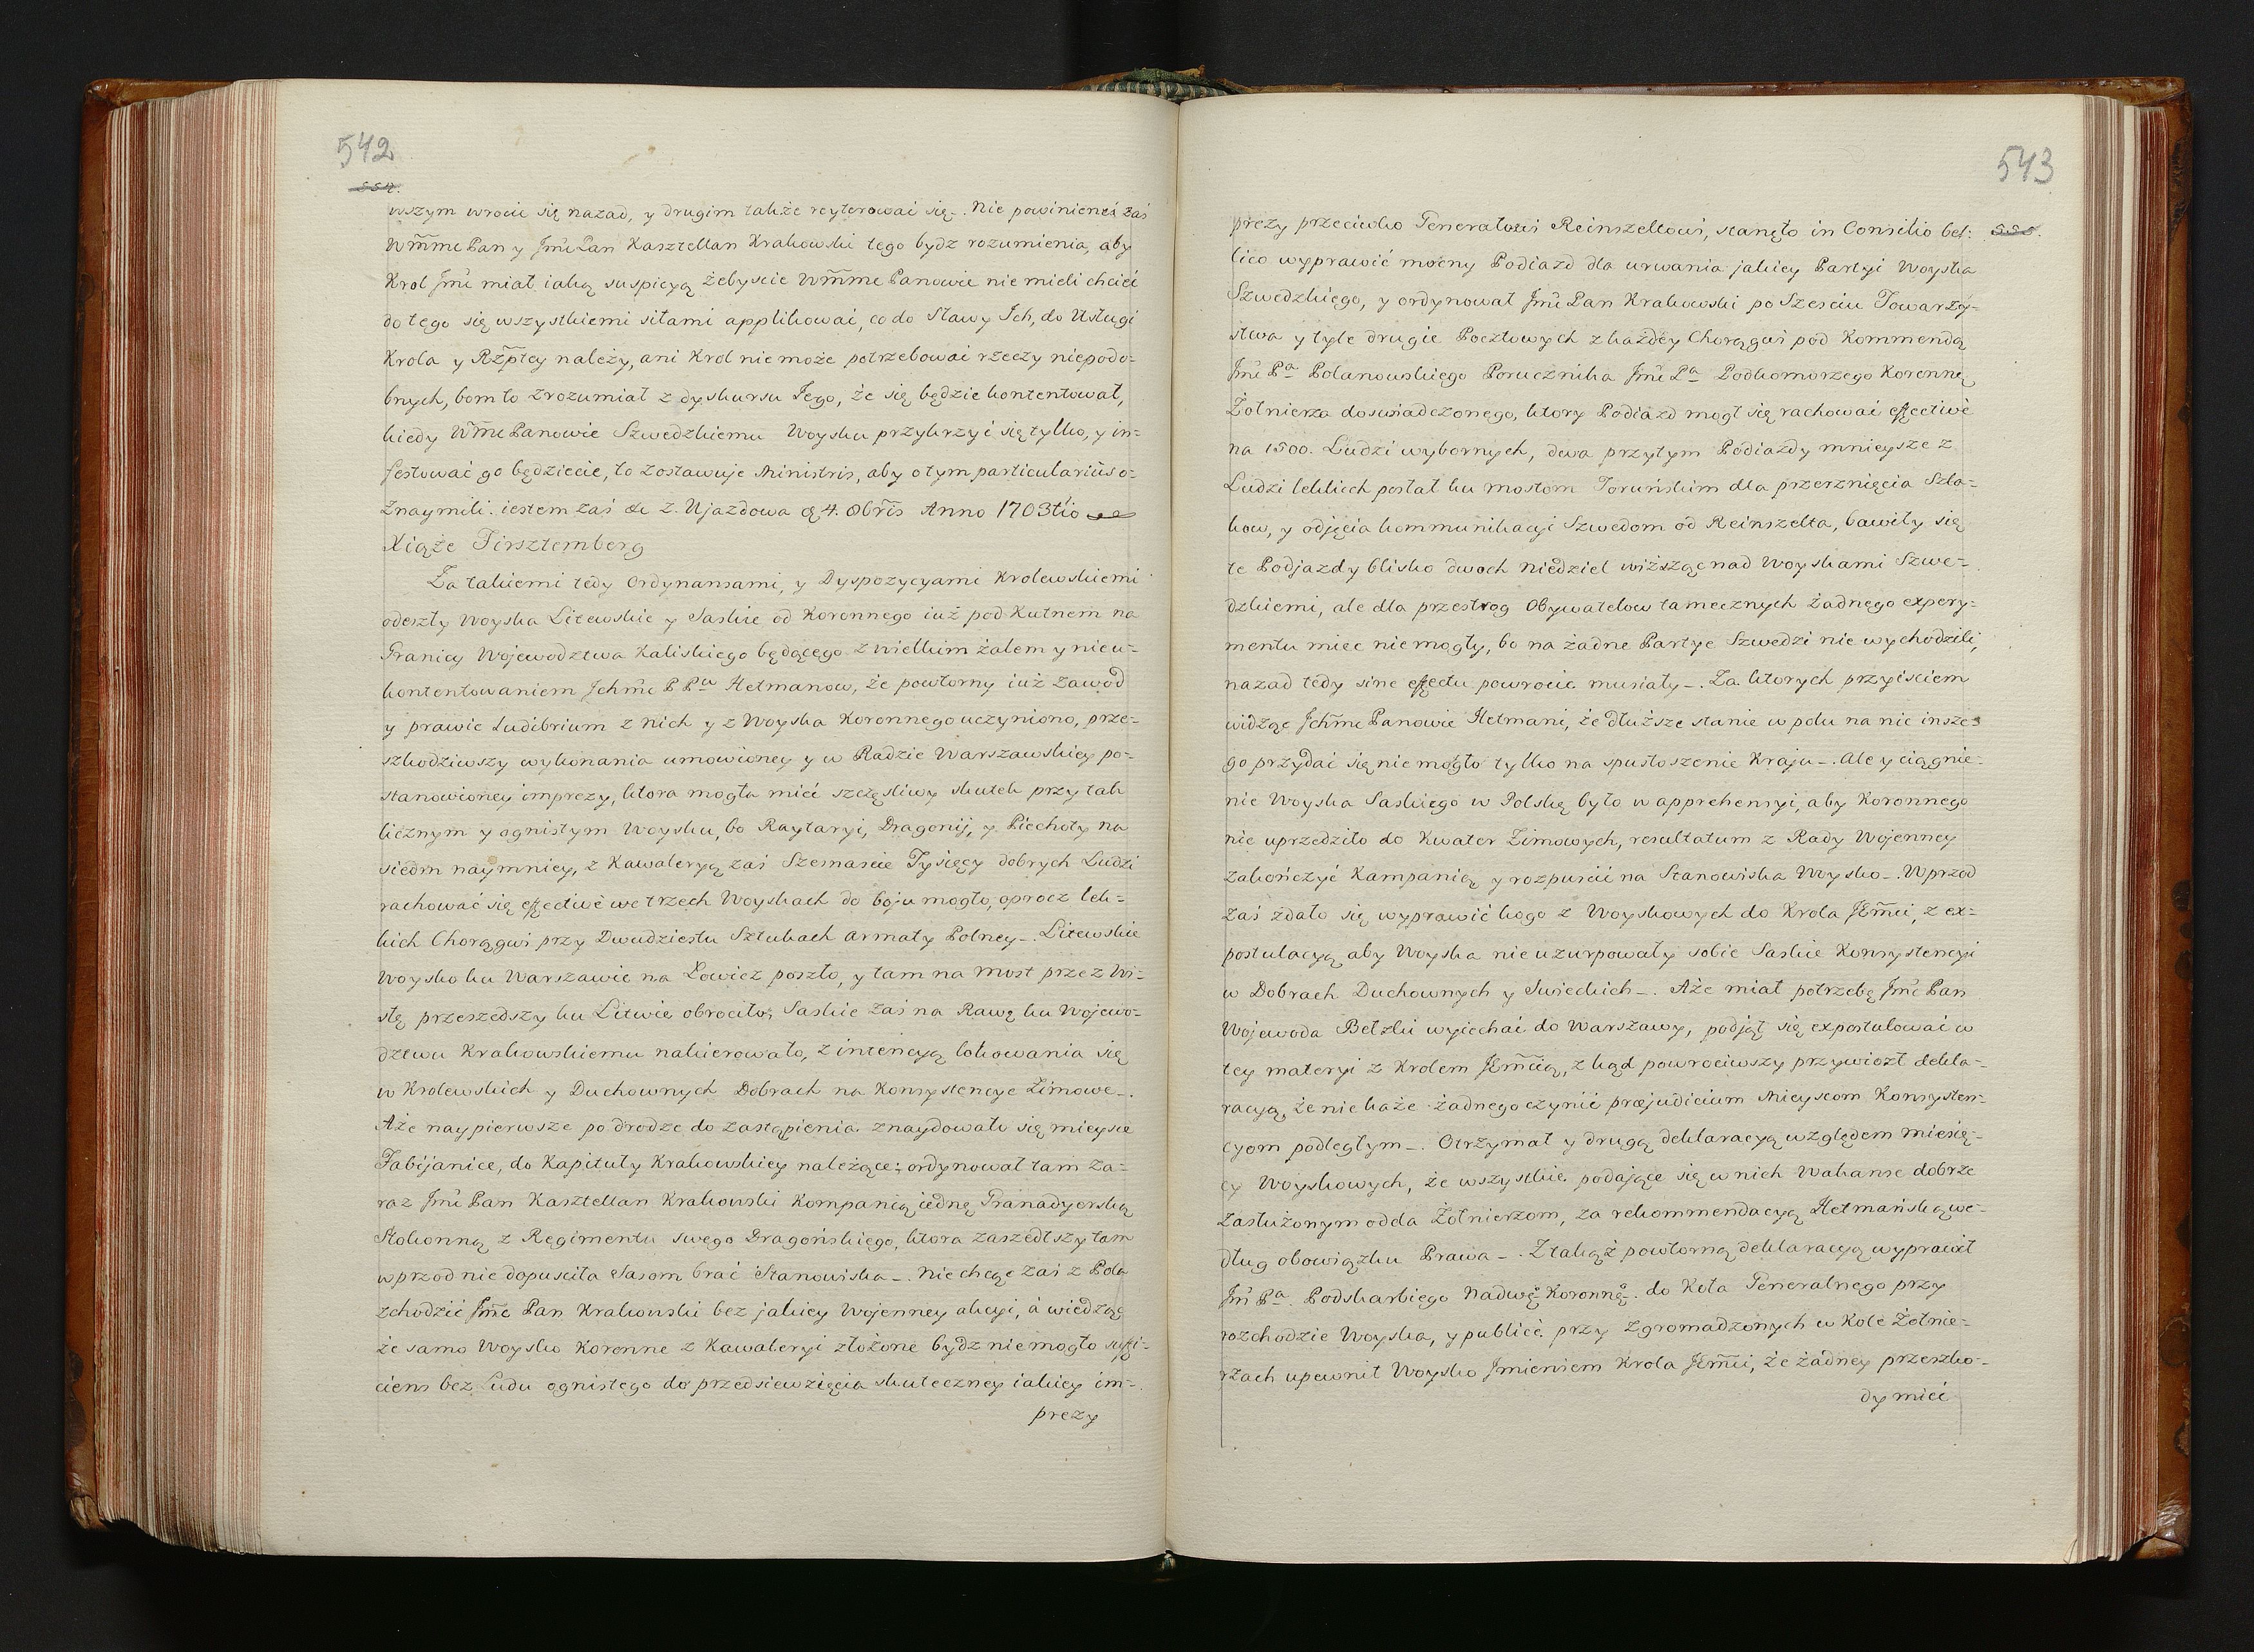 542
554.
wszym wrocic się nazad, y drugim także reyterować się_. Nie powinieneś zaś
Wm̃me Pan y Jm̃ć Pan Kasztellan Krakowski tego bydz rozumienia, aby
Krol Jm̃ć miał iaką suspicyą żebyscie Wm̃me Panowie nie mieli chcieć
do tego się wszystkiemi siłami applikować, co do Sławy Ich, do Usługi
Krola y Rz̃ptey należy, ani Krol nie może potrzebować rzeczy niepodo=
bnych, bom to zrozumiał z dyskursu Jego, że się będzie kontentował,
kiedy Wm̃e Panowie Szwedzkiemu Woysku przykrzyć się tylko, y in=
festować go będziecie, to zostawuje Ministris, aby o tym particularius o=
znaymili. iestem zaś &c z. Ujazdowa d 4. 8br̃is Anno 1703tio
Xiąże Firsztemberg
Za takiemi tedy Ordynansami, y Dyspozycyami Krolewskiemi
odeszły Woyska Litewskie y Saskie od Koronnego iuż pod Kutnem na
Granicy Wojewodztwa Kaliskiego będącego z wielkim żalem y nieu=
kontentowaniem Jchm̃ć P Pw Hetmanow, że powtorny iuż zawod
y prawie Ludibrium z nich y z Woyska Koronnego uczyniono, prze=
szkodziwszy wykonania umowioney y w Radzie Warszawskiey po=
stanowioney imprezy, ktora mogła mieć szczęsliwy skutek przy tak
licznym y ognistym Woysku, bo Raytaryi, Dragonij, y Piechoty na
siedm naymniey, z Kawaleryą zaś Szesnascie Tysięcy dobrych Ludzi
rachować się effective we trzech Woyskach do boju mogło, oprocz lek=
kich Chorągwi przy Dwudziestu Sztukach Armaty Polney_. Litewskie
Woysko ku Warszawie na Łowicz poszło, y tam na most przez Wi=
słę przeszedszy ku Litwie obrociło, Saskie zaś na Rawę ku Wojewo=
dztwu Krakowskiemu nakierowało, z intencyą lokowania się
w Krolewskich y Duchownych Dobrach na Konsystencye Zimowe_.
Aże naypierwsze po drodze do zastąpienia znaydowało się mieysce
Fabijanice, do Kapituły Krakowskiey należące, ordynował tam za=
raz Jm̃ć Pan Kasztellan Krakowski Kompanią iedną Granadyerską
Stokonną z Regimentu swego Dragońskiego, ktora zaszedłszy tam
wprzod nie dopusciła Sasom brać Stanowiska_. Niechcąc zaś z Pola
zchodzić Jm̃ć Pan Krakowski bez jakiey Wojenney akcyi, á wiedząc
że samo Woysko Koronne z Kawaleryi złożone bydz niemogło suffi=
ciens bez Ludu ognistego do przedsiewzięcia skuteczney iakiey im=
prezy
543
555.
prezy przeciwko Generałowi Reinszeltowi, stanęło in Consilio bel=
lico wyprawić mocny Podiazd dla urwania jakiey Partyi Woyska
Szwedzkiego, y ordynował Jm̃ć Pan Krakowski po Szesciu Towarzy=
stwa y tyle drugie Pocztowych z każdey Chorągwi pod Kommendą
Jm̃ć Pa Polanowskiego Porucznika Jm̃ć Pa Podkomorzego Koronne
Żołnierza doswiadczonego, ktory Podiazd mogł się rachować effective
na 1500. Ludzi wybornych, dwa przytym Podiazdy mnieysze z
Ludzi lekkich posłał ku mostom Toruńskim dla przerznięcia Szla=
kow, y odjęcia kommunikacyi Szwedom od Reinszelta, bawiły się
te Podjazdy blisko dwoch niedziel wiższąc nad Woyskami Szwe=
dzkiemi, ale dla przestrog Obywatelow tamecznych żadnego expery=
mentu miec niemogły, bo na żadne Partye Szwedzi nie wychodzili,
nazad tedy sine effectu powrocic musiały_. Za ktorych przyisciem
widząc Jchm̃ć Panowie Hetmani, że dłuższe stanie w polu na nic insze=
go przydać się nie mogło tylko na spustoszenie Kraju_. Ale y ciągnie=
nie Woyska Saskiego w Polskę było w apprehensyi, aby Koronnego
nie uprzedziło do Kwater Zimowych, resultatum z Rady Wojenney
zakończyć Kampanią y rozpuscić na Stanowiska Woysko_. Wprzod
zaś zdało się wyprawić kogo z Woyskowych do Krola JEm̃ci, z ex=
postulacyą aby Woyska nie uzurpowały sobie Saskie Konsystencyi
w Dobrach Duchownych y Swieckich_. Aże miał potrzebę Jm̃ć Pan
Wojewoda Bełzki wyiechać do Warszawy, podjął się expostulować w
tey materyi z Krolem JEm̃cią, z kąd powrociwszy przywiozł dekla=
racyą, że nie każe żadnego czynić præjudicium Mieyscom Konsysten=
cyom podległym_. Otrzymał y drugą deklaracyą względem miesię=
cy Woyskowych, że wszystkie podające się w nich Wakanse dobrze
zasłużonym odda Żołnierzom, za rekommendacyą Hetmańską we=
dług obowiązku Prawa_. Z takąż powtorną deklaracyą wyprawił
Jm̃ Pa. Podskarbiego Nadwę Koronneg. do Koła Generalnego przy
rozchodzie Woyska, y publice przy zgromadzonych w Kole Żołnie=
rzach upewnił Woysko Jmieniem Krola JEm̃ci, że żadney przeszko=
dy mieć